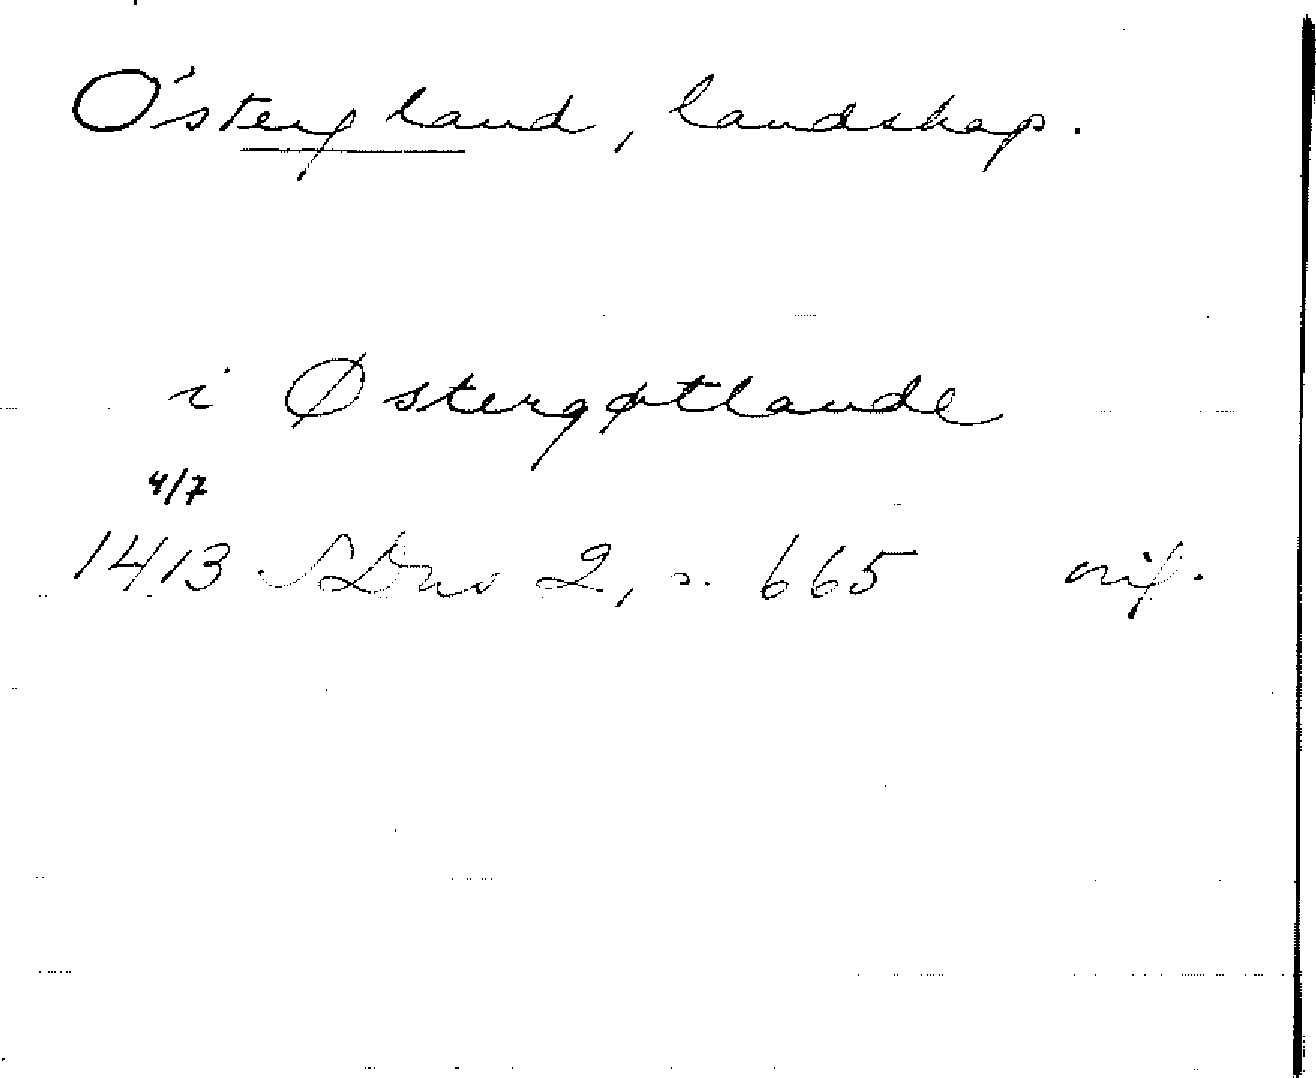 Östergland, landskap.
i Østergøtlande
4/7
1413 SDns 2, s. 665 orig.